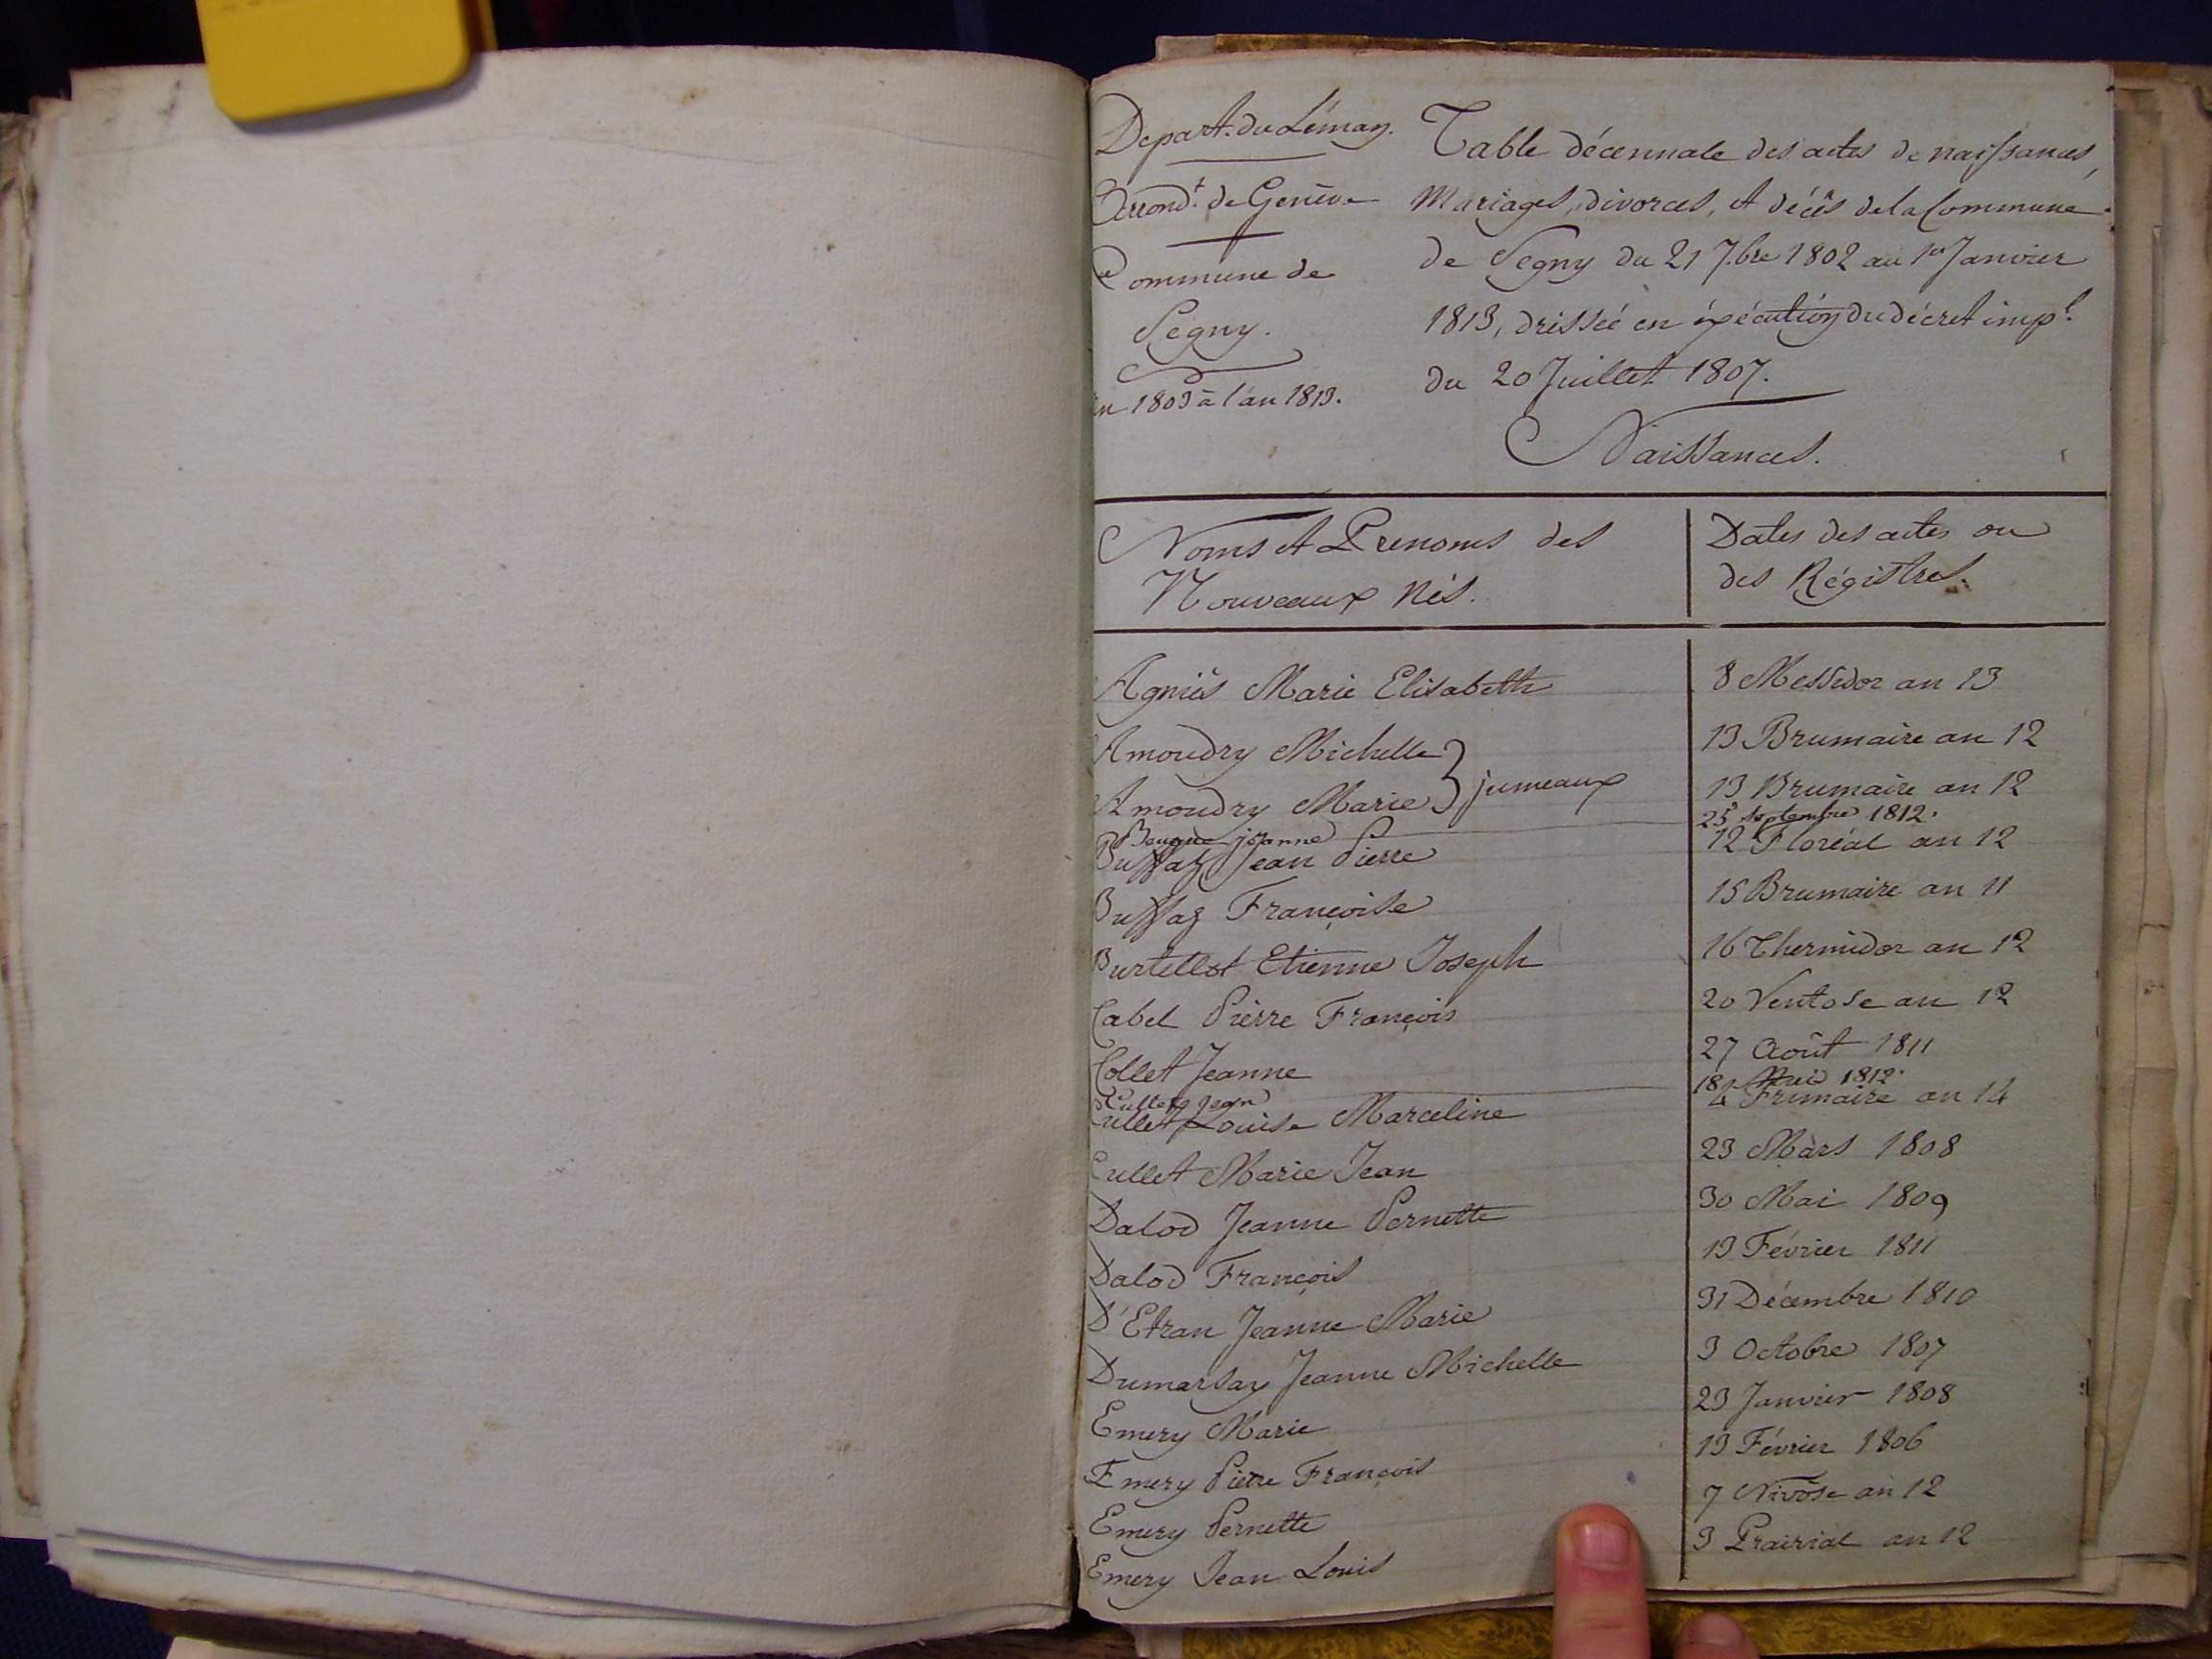 Depart. du Léman.
Arrond.t de Genève
Commune de
Segny.
an 1803 à l'an 1813.
Table décennale des actes de naissances,
Mariages, divorces, et décès de la Commune
de Segny du 21 7.bre 1802 au 1er Janvier
1813, dressée en éxécution du décret imp.l
du 20 Juillet 1807.
Naissances.
Noms et Prenoms des
Nouveaux Nés.
Dates des actes ou
des Régistres.
Agniès Marie Elisabeth 8 Messidor an 13
Amoudry Michelle 13 Brumaire an 12
jumeaux
Amoudry Marie 13 Brumaire an 12
jeanne 25 Septembre 1812.
Bussaz Jean Pierre 12 Floréal an 12
Bussaz Françoise 15 Brumaire an 11
Burtellot Etienne Joseph 16 Thermidor an 12
Cabel Pierre François 20 Ventose an 12
Collet Jeanne 27 Août 1811
Cullet Jean 18 Mai 1812.
Cullet Louise Marceline 4 Frimaire an 14
Cullet Marie Jean 23 Mars 1808
Dalod Jeanne Pernette 30 Mai 1809
Dalod François 13 Février 1811
D'Etran Jeanne Marie 31 Décembre 1810
Dumarsay Jeanne Michelle 3 Octobre 1807
Emery Marie 23 Janvier 1808
Emery Pierre François 13 Février 1806
Emery Pernette 7 Nivôse an 12
Emery Jean Louis 3 Prairial an 12